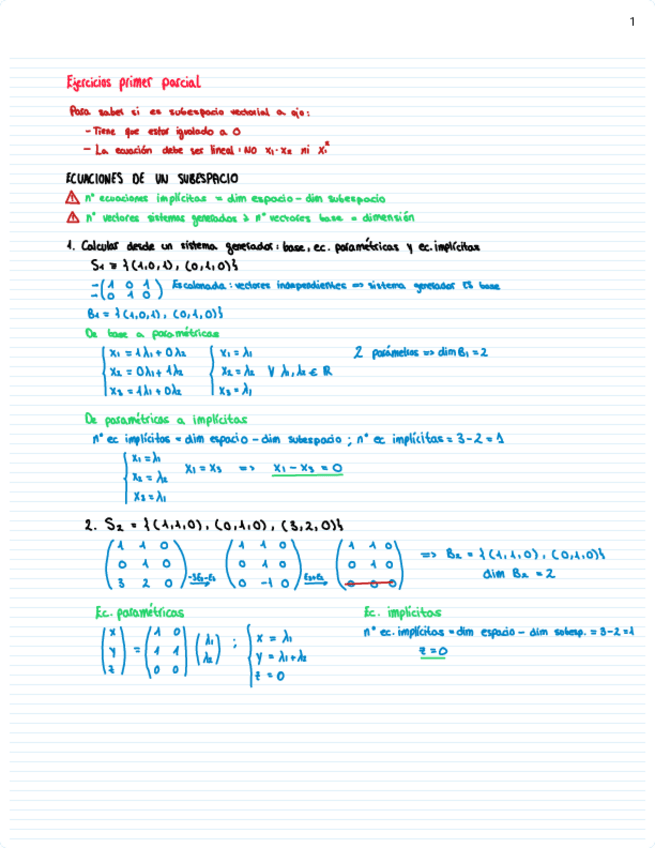 1
Ejercicios primer parcial
Para saber si es subespacio vectorial a ojo:
- Tiene que estar igualado a 0
- La ecuación debe ser lineal: NO x₁·x₂ ni x₁²
ECUACIONES DE UN SUBESPACIO
⚠ nº ecuaciones implícitas = dim espacio - dim subespacio
⚠ nº vectores sistemas generados ≥ nº vectores base = dimensión
1. Calcular desde un sistema generador: base, ec. paramétricas y ec. implícitas
S₁ = {(1,0,1), (0,1,0)}
(1 0 1) Escalonada: vectores independientes => sistema generador ES base
(0 1 0)
B₁ = {(1,0,1), (0,1,0)}
De base a paramétricas
x₁ = 1λ₁ + 0λ₂ x₁ = λ₁ 2 parámetros => dim B₁ = 2
x₂ = 0λ₁ + 1λ₂ x₂ = λ₂ ∀ λ₁, λ₂ ∈ R
x₃ = 1λ₁ + 0λ₂ x₃ = λ₁
De paramétricas a implícitas
nº ec implícitas = dim espacio - dim subespacio ; nº ec implícitas = 3 - 2 = 1
x₁ = λ₁
x₂ = λ₂ x₁ = x₃ => x₁ - x₃ = 0
x₃ = λ₁
2. S₂ = {(1,1,0), (0,1,0), (3,2,0)}
(1 1 0) (1 1 0) (1 1 0)
(0 1 0) (0 1 0) (0 1 0) => B₂ = {(1,1,0), (0,1,0)}
(3 2 0) (0 -1 0) (0 0 0) dim B₂ = 2
Ec. paramétricas Ec. implícitas
(x) (1 0) (λ₁) x = λ₁ nº ec. implícitas = dim espacio - dim subesp. = 3 - 2 = 1
(y) = (1 1) (λ₂) ; y = λ₁ + λ₂ z = 0
(z) (0 0) z = 0